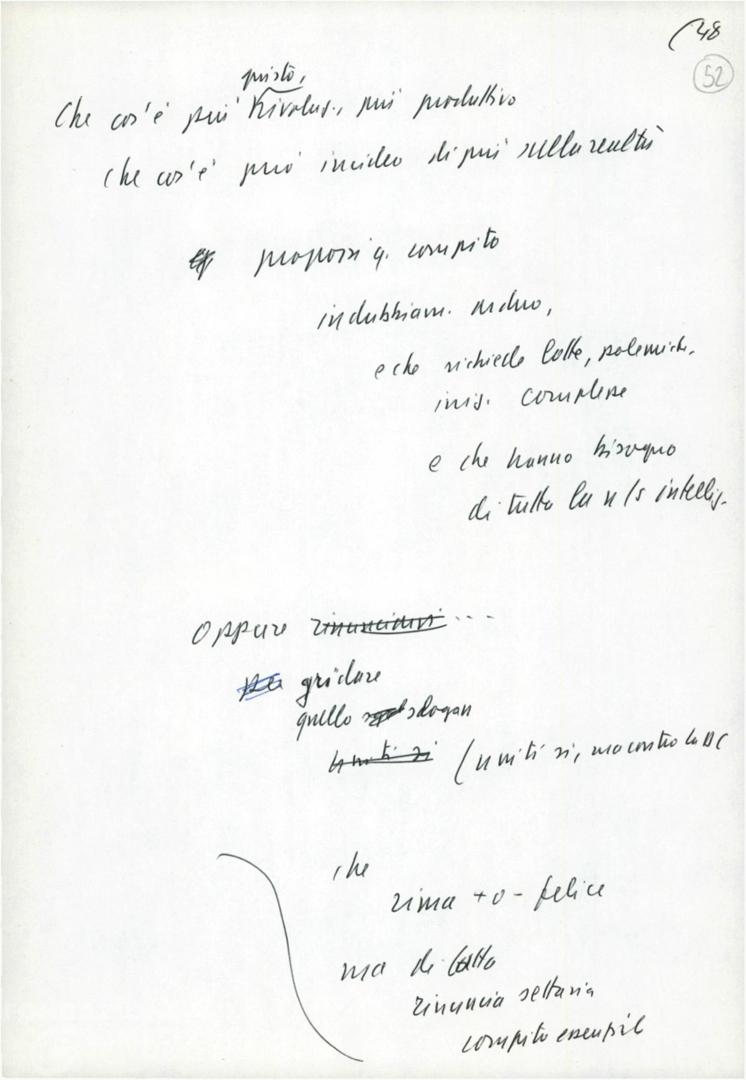 48
52
giusto,
Che cos'è più rivoluz., più produttivo
che cos'è più incideo di più sulla realtà
proporsi q. compito
indubbiam. arduo,
e che richiede lotte, polemiche,
iniz. complesse
e che hanno bisogno
di tutta la n/s intellig.
Oppure rinunciarvi ...
per gridare
quello slogan
Uniti si (uniti si, ma contro la DC
che
rima + o - felice
ma di fatto
rinuncia settaria
compito essenzial